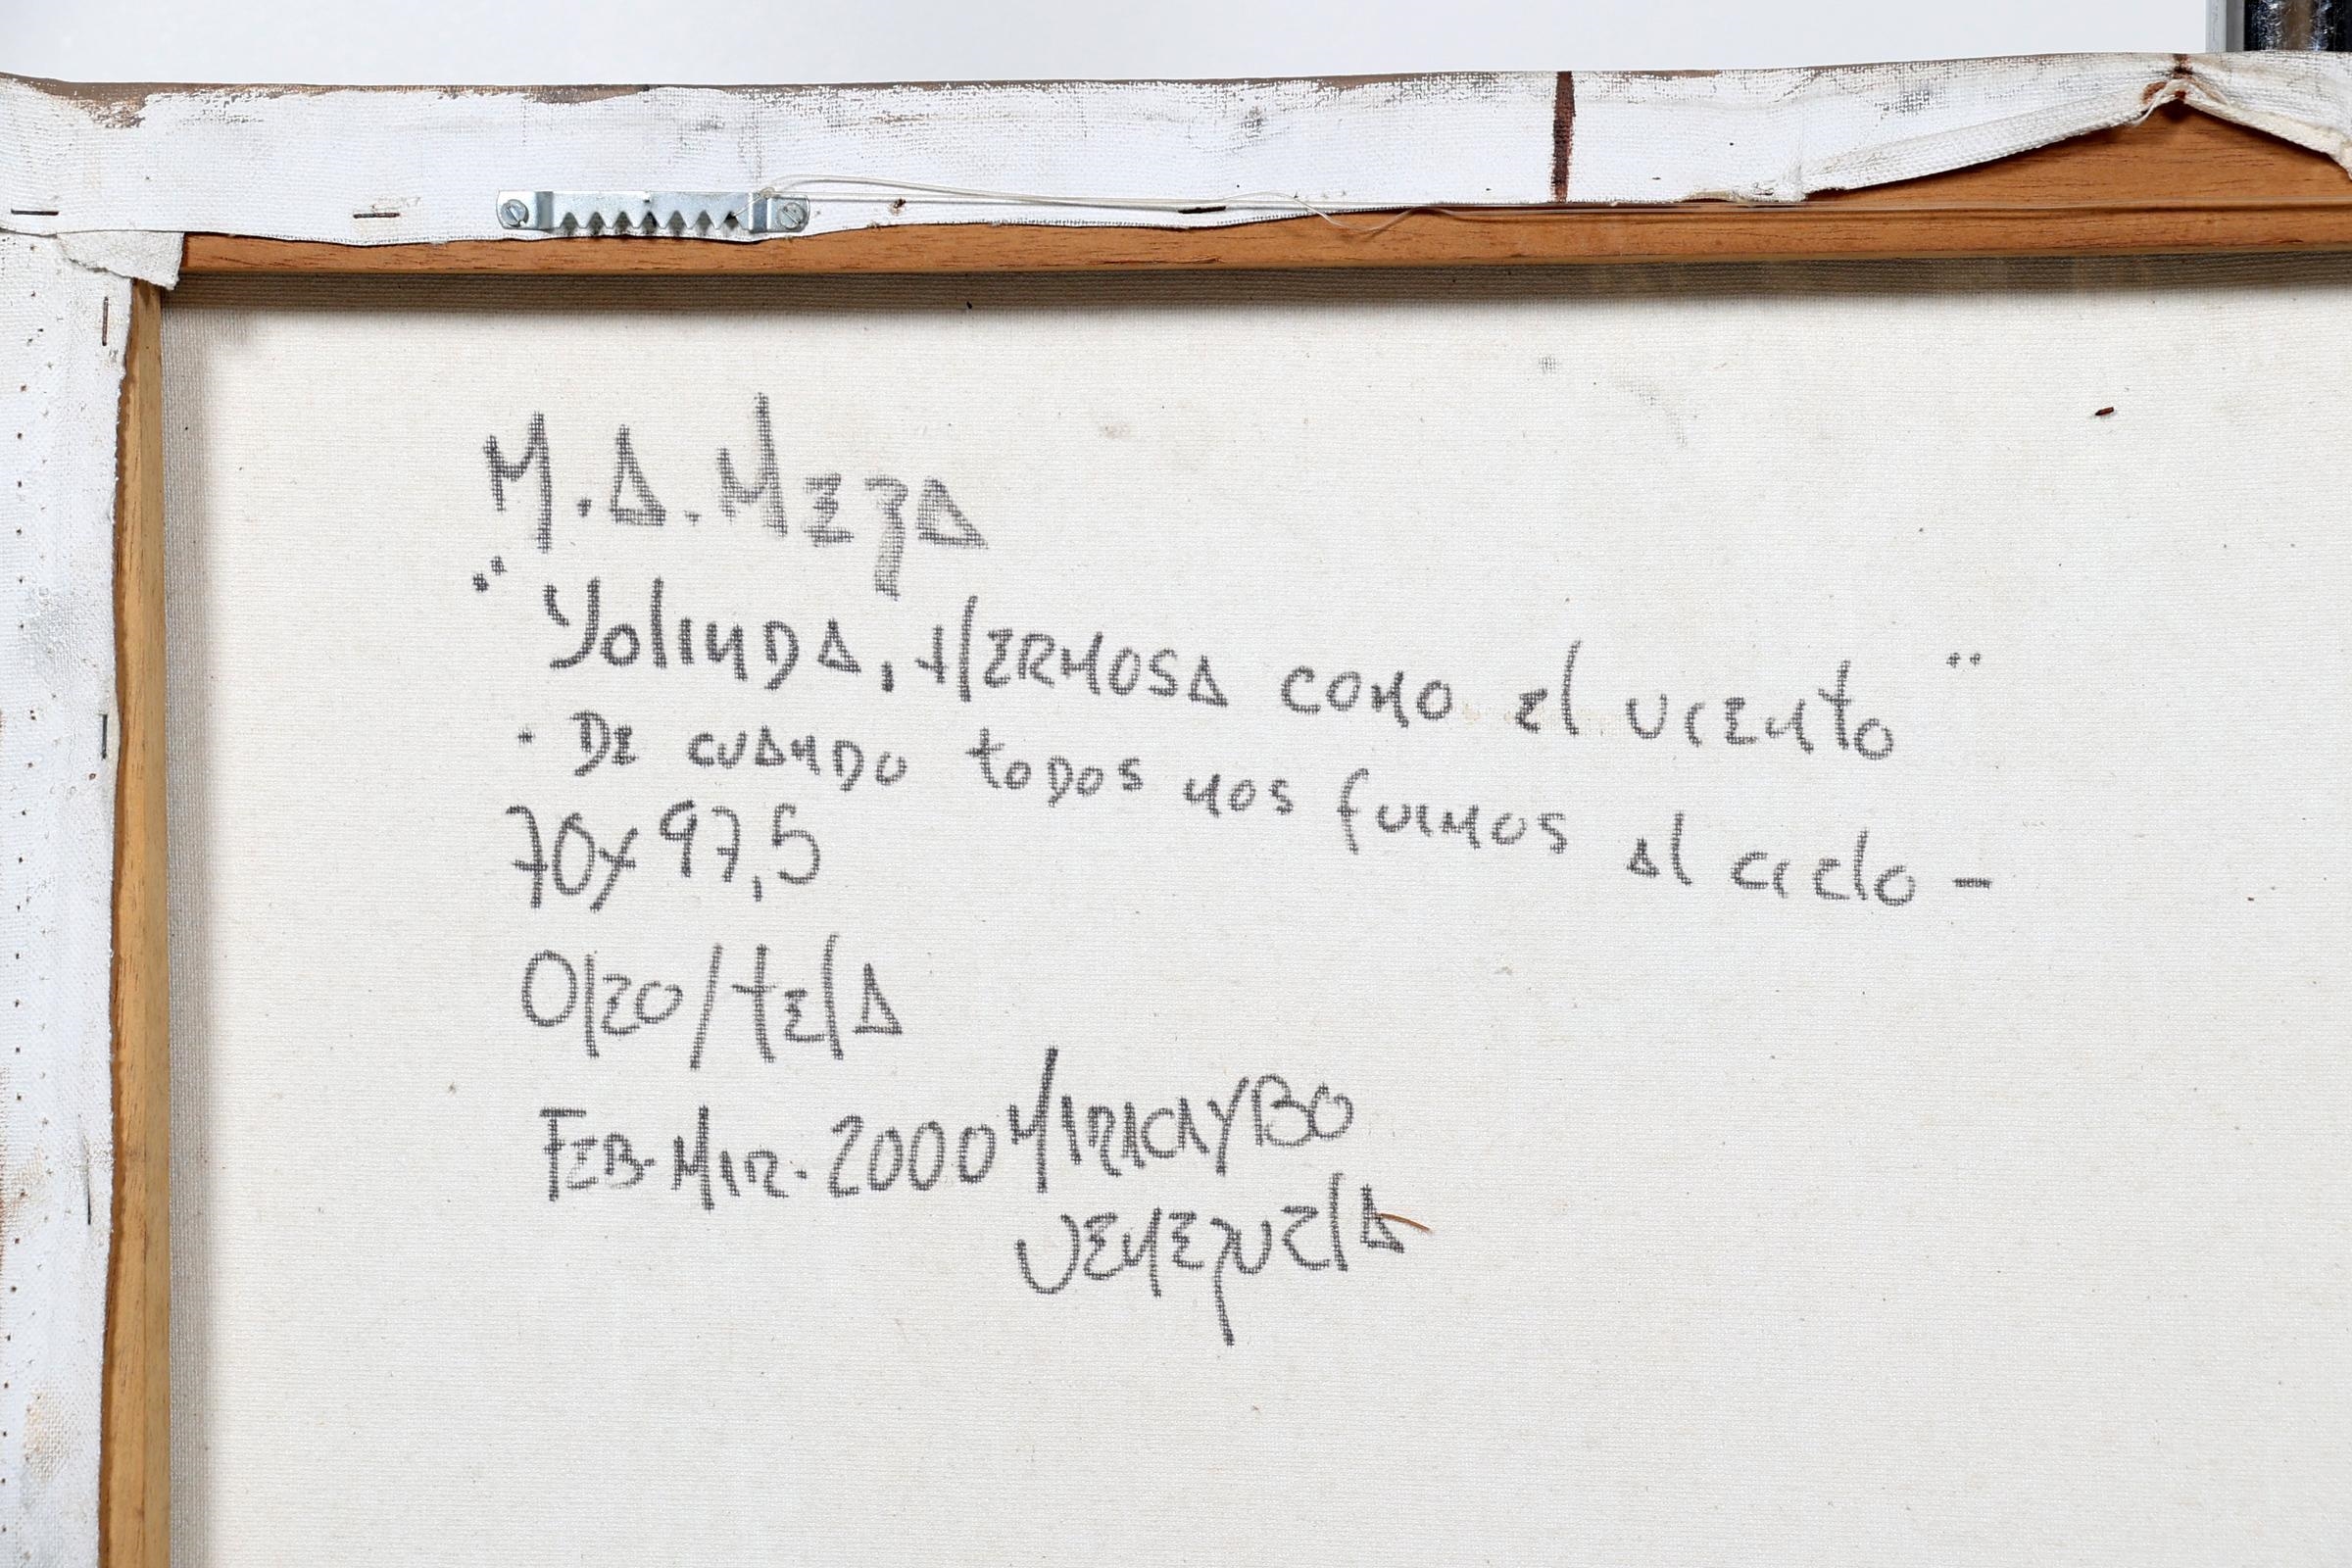 M.A. Meza
"Yolinda, Hermosa como el viento"
· De cuando todos nos fuimos al cielo -
70x97,5
Oleo/tela
Feb. Mar. 2000 Maracaybo
Venezuela